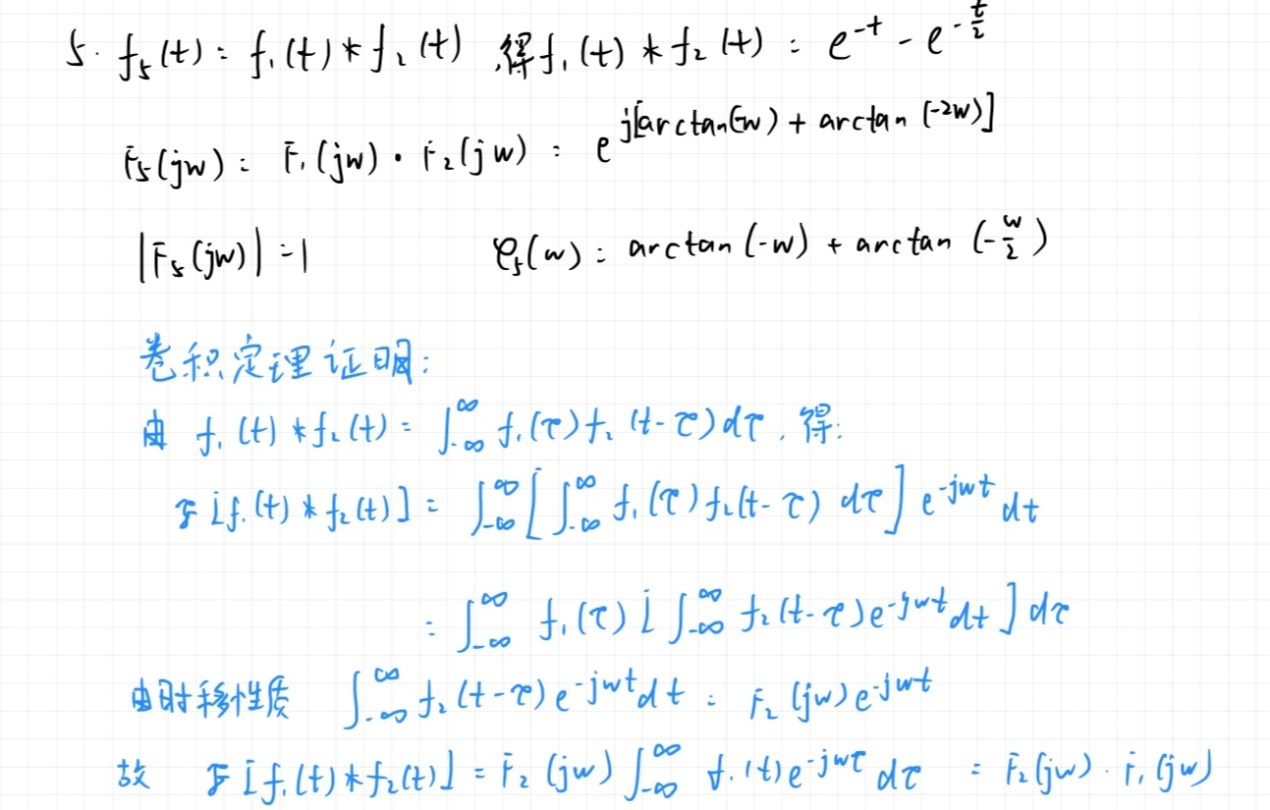 5. f₅(t) = f₁(t) * f₂(t) 得 f₁(t) * f₂(t) = e^{-t} - e^{-t/2}
F₅(jw) = F₁(jw) · F₂(jw) = e^{j[arctan(-w) + arctan(-2w)]}
|F₅(jw)| = 1 φ₅(w) = arctan(-w) + arctan(-w/2)
卷积定理证明:
由 f₁(t) * f₂(t) = ∫_{-∞}^{∞} f₁(τ) f₂(t-τ) dτ, 得:
ℱ[f₁(t) * f₂(t)] = ∫_{-∞}^{∞} [∫_{-∞}^{∞} f₁(τ) f₂(t-τ) dτ] e^{-jwt} dt
= ∫_{-∞}^{∞} f₁(τ) [∫_{-∞}^{∞} f₂(t-τ) e^{-jwt} dt] dτ
由时移性质 ∫_{-∞}^{∞} f₂(t-τ) e^{-jwt} dt = F₂(jw) e^{-jwt}
故 ℱ[f₁(t) * f₂(t)] = F₂(jw) ∫_{-∞}^{∞} f₁(t) e^{-jwτ} dτ = F₂(jw) · F₁(jw)